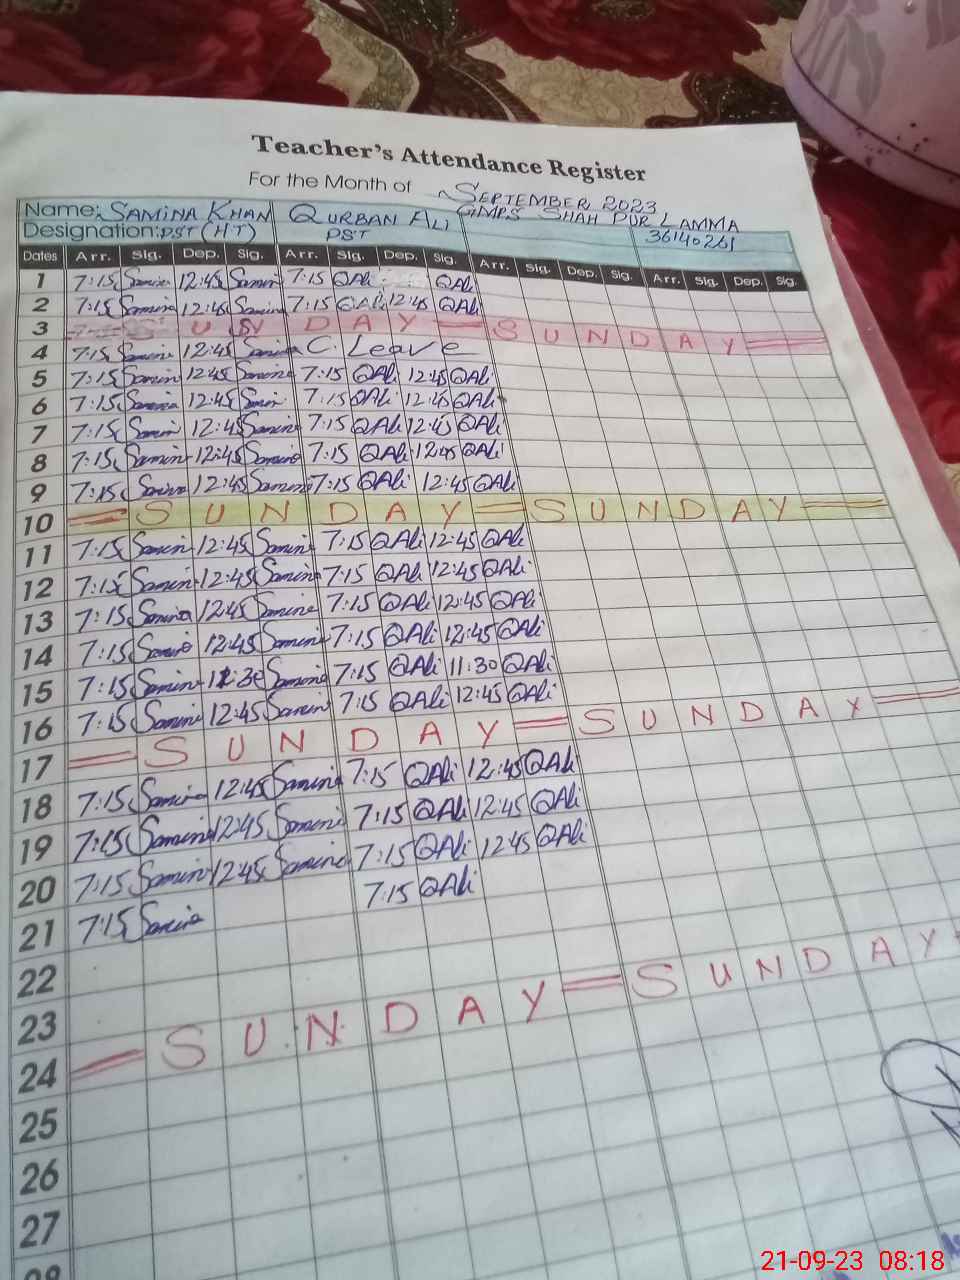 Teacher's Attendance Register
For the Month of SEPTEMBER 2023
GMPS SHAH PUR LAMMA
Name: SAMINA KHAN QURBAN ALI
Designation: PST (HT) PST 36140261
Dates Arr. Sig. Dep. Sig. Arr. Sig. Dep. Sig. Arr. Sig. Dep. Sig. Arr. Sig. Dep. Sig.
1 7:15 Samina 12:45 Samina 7:15 QAli QAli
2 7:15 Samina 12:45 Samina 7:15 QAli 12:45 QAli
3 U DAY = SUNDAY =
4 7:15 Samina 12:45 Samina C. Leave
5 7:15 Samina 12:45 Samina 7:15 QAli 12:45 QAli
6 7:15 Samina 12:45 Samina 7:15 QAli 12:45 QAli
7 7:15 Samina 12:45 Samina 7:15 QAli 12:45 QAli
8 7:15 Samina 12:45 Samina 7:15 QAli 12:45 QAli
9 7:15 Samina 12:45 Samina 7:15 QAli 12:45 QAli
10 = SUNDAY = SUNDAY =
11 7:15 Samina 12:45 Samina 7:15 QAli 12:45 QAli
12 7:15 Samina 12:45 Samina 7:15 QAli 12:45 QAli
13 7:15 Samina 12:45 Samina 7:15 QAli 12:45 QAli
14 7:15 Samina 12:45 Samina 7:15 QAli 12:45 QAli
15 7:15 Samina 11:30 Samina 7:15 QAli 11:30 QAli
16 7:15 Samina 12:45 Samina 7:15 QAli 12:45 QAli
17 = SUNDAY = SUNDAY =
18 7:15 Samina 12:45 Samina 7:15 QAli 12:45 QAli
19 7:15 Samina 12:45 Samina 7:15 QAli 12:45 QAli
20 7:15 Samina 12:45 Samina 7:15 QAli 12:45 QAli
21 7:15 Samina 7:15 QAli
22
23
24 = SUNDAY = SUNDAY
25
26
27
28
21-09-23 08:18